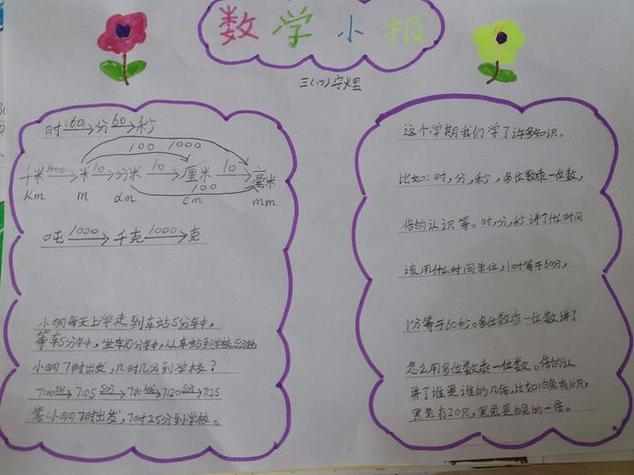 数学小报
三(八)宁煋
时60分60秒
100 1000
千米1000米10分米10厘米10毫米
100
km m dm cm mm
吨1000千克1000克
小明每天上学走到车站5分钟,
等车5分钟,坐车10分钟,从车站到学校5分钟,
小明7时出发,几时几分到学校?
7:00 7:05 7:10 7:20 7:25
答:小明7时出发,7时25分到学校。
这个学期我们学了许多知识。
比如:时,分,秒,多位数乘一位数,
倍的认识等。时,分,秒讲了什么时间
该用什么时间单位,1小时等于60分,
1分等于60秒。多位数乘一位数讲了
怎么用多位数乘一位数。倍的认
讲了谁是谁的几倍,比如:白兔有10只,
黑兔有20只,黑兔是白兔的一倍。